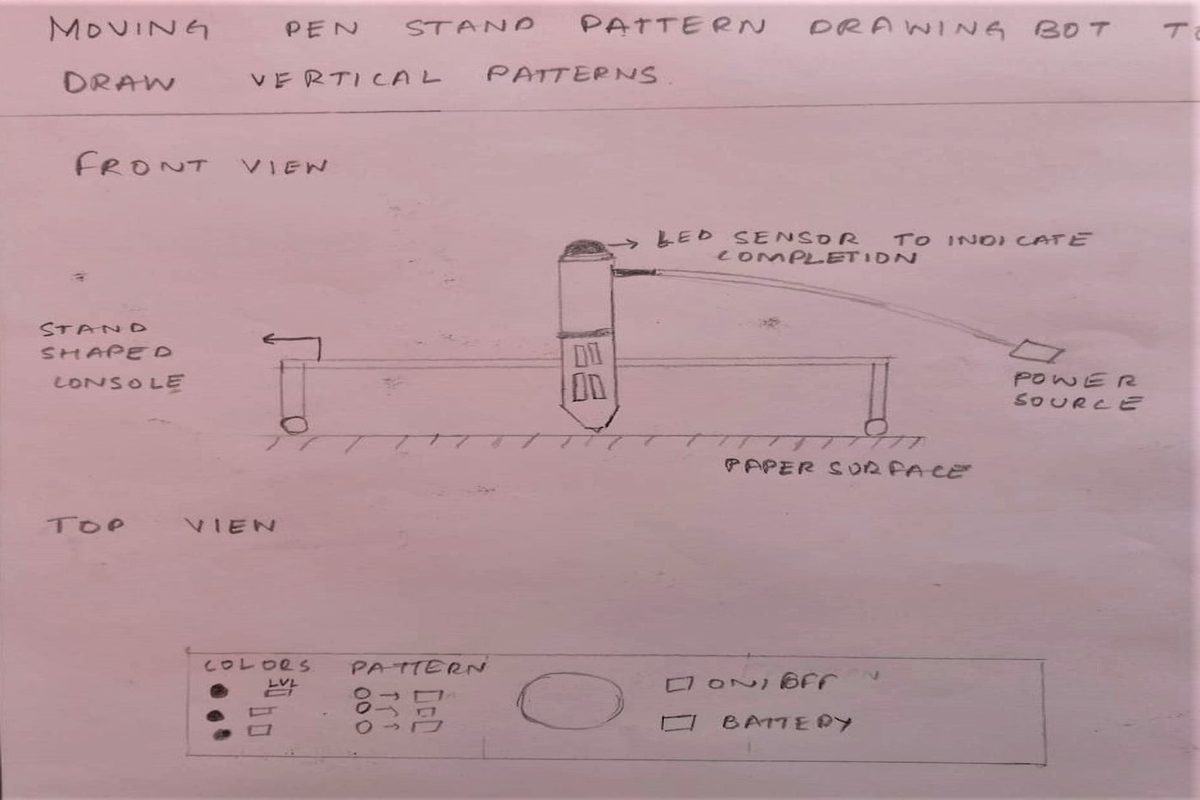 MOVING PEN STAND PATTERN DRAWING BOT TO
DRAW VERTICAL PATTERNS.
FRONT VIEW
LED SENSOR TO INDICATE
COMPLETION
STAND
SHAPED
CONSOLE
POWER
SOURCE
PAPER SURFACE
TOP VIEW
COLORS
LVL
PATTERN
ON/OFF
BATTERY